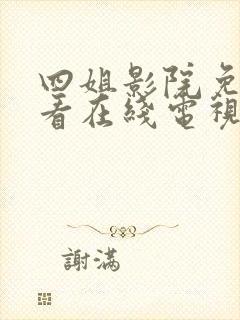 四姐影院免
看在綫電視
謝滿